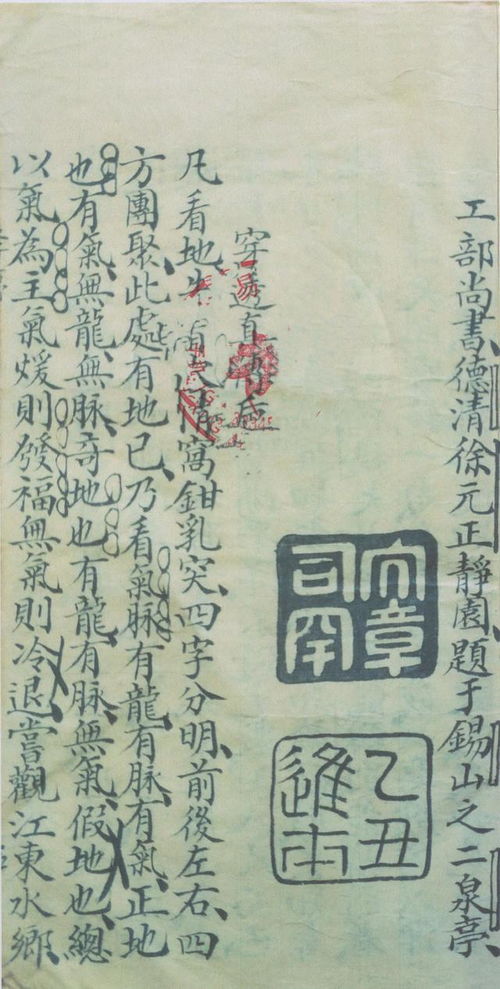 工部尚書德清徐元正靜園題于錫山之二泉亭
章司
乙丑進
穿透真
凡看地先情窩鉗乳突四字分明前後左右四
方團聚此處有地已乃看氣脉有龍有脉有氣正地
也有氣無龍無脉奇地也有龍有脉無氣假地也總
以氣為主氣煖則發福無氣則冷退嘗觀江東水鄉